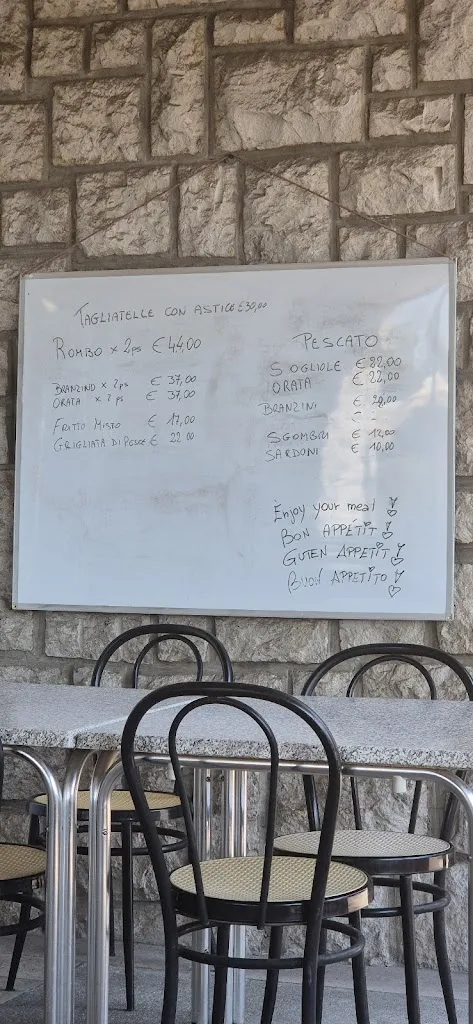 TAGLIATELLE CON ASTICE €30,00
ROMBO x 2ps € 44,00
BRANZINO x 2ps € 37,00
ORATA x 2 ps € 37,00
FRITTO MISTO € 17,00
GRIGLIATA DI PESCE € 22 00
PESCATO
SOGLIOLE € 22,00
ORATA € 22,00
BRANZINI €
SGOMBRI € 12,00
SARDONI € 10,00
Enjoy your meal !
BON APPÉTIT !
GUTEN APPETIT !
BUON APPETITO !